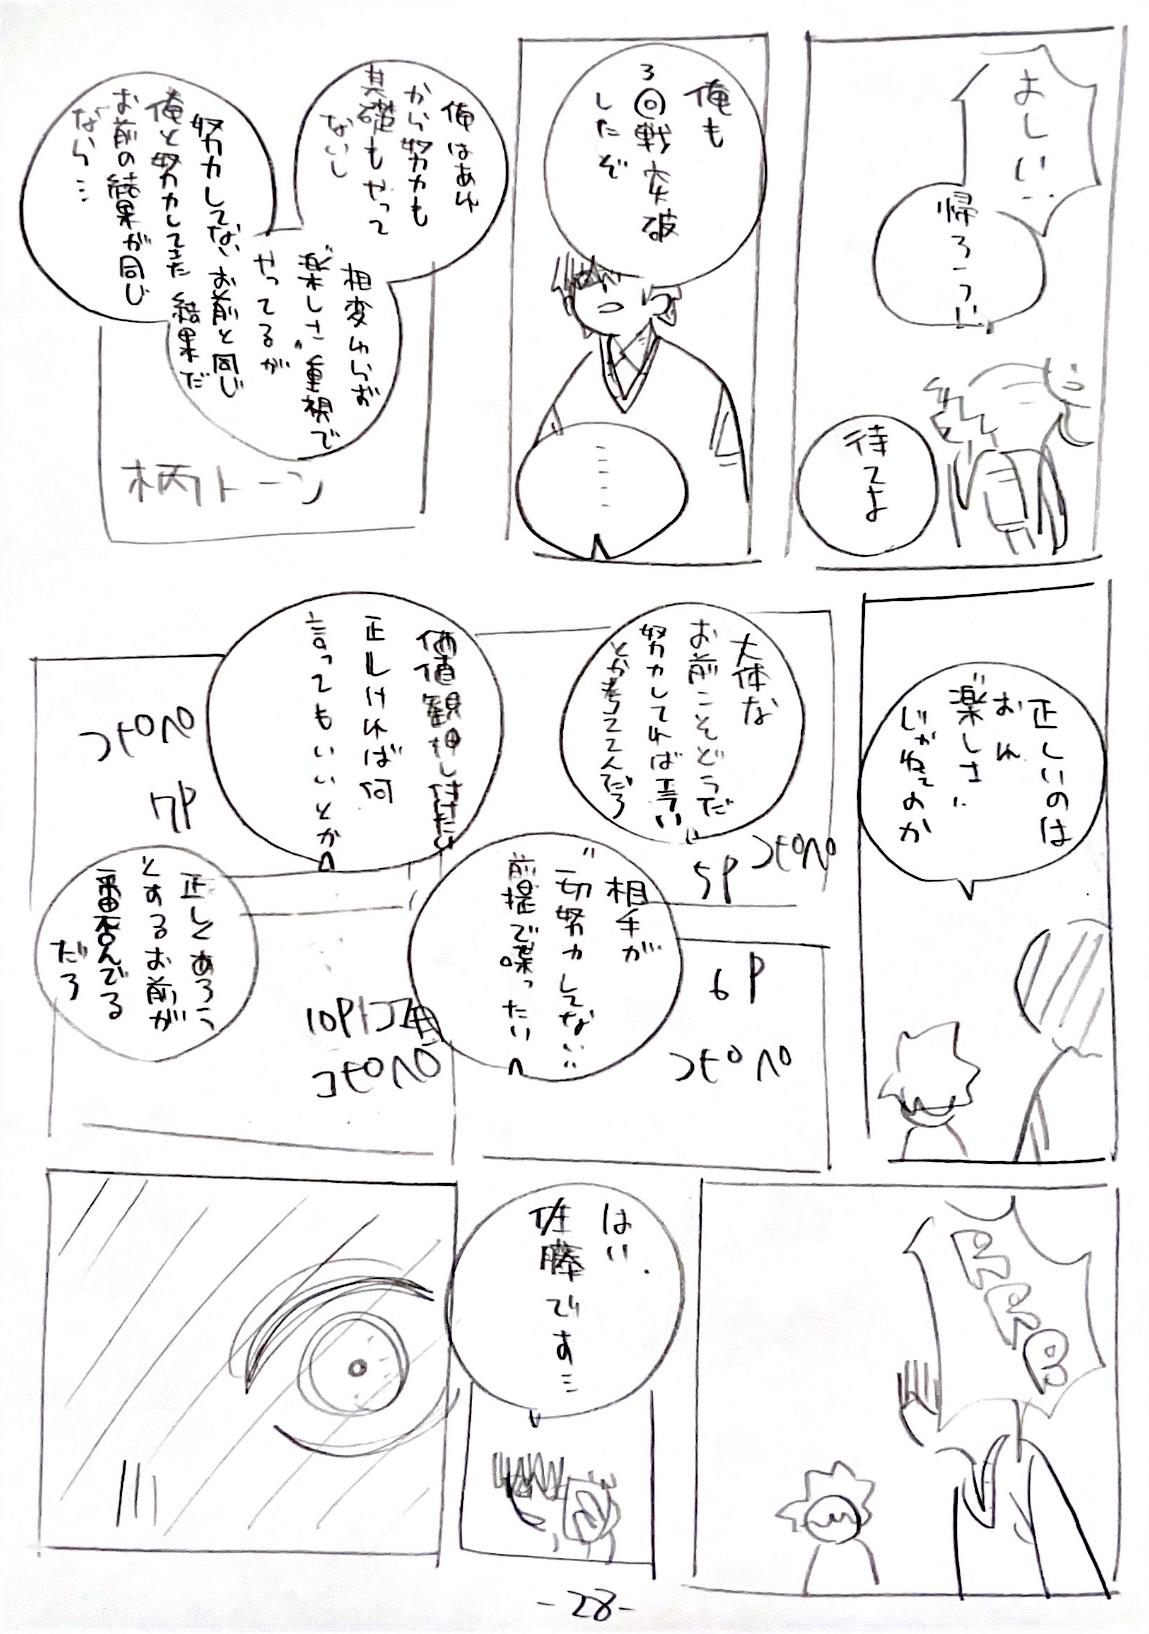 よしい…
帰ろーっと
待てよ
俺も
3回戦突破
したぞ
俺はあれ
から努力も
基礎もやって
ないし
相変わらず
"楽しさ"重視で
やってるが
努力してないお前と同じ
俺と努力してきた結果だ
お前の結果が同じ
なら…
柄トーン
正しいのは
おれ
"楽しさ"
じゃねぇのか
大体な
お前こそどうだ
努力してれば偉い
とか考えてんだろ
コピペ
5P
価値観押し付けたり
正しければ何
言ってもいいとか
コピペ
7P
相手が
"一切努力してない"
前提で喋ったり
6P
コピペ
正しくあろう
とするお前が
一番歪んでる
だろ
10P1コマ
コピペ
PRRR
はい.
佐藤です…
-28-